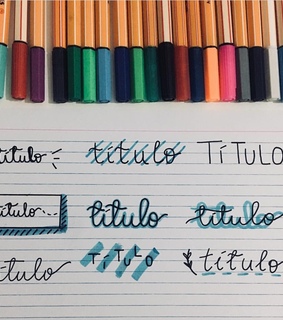 título título TÍTULO
título... título título
título TÍTULO título